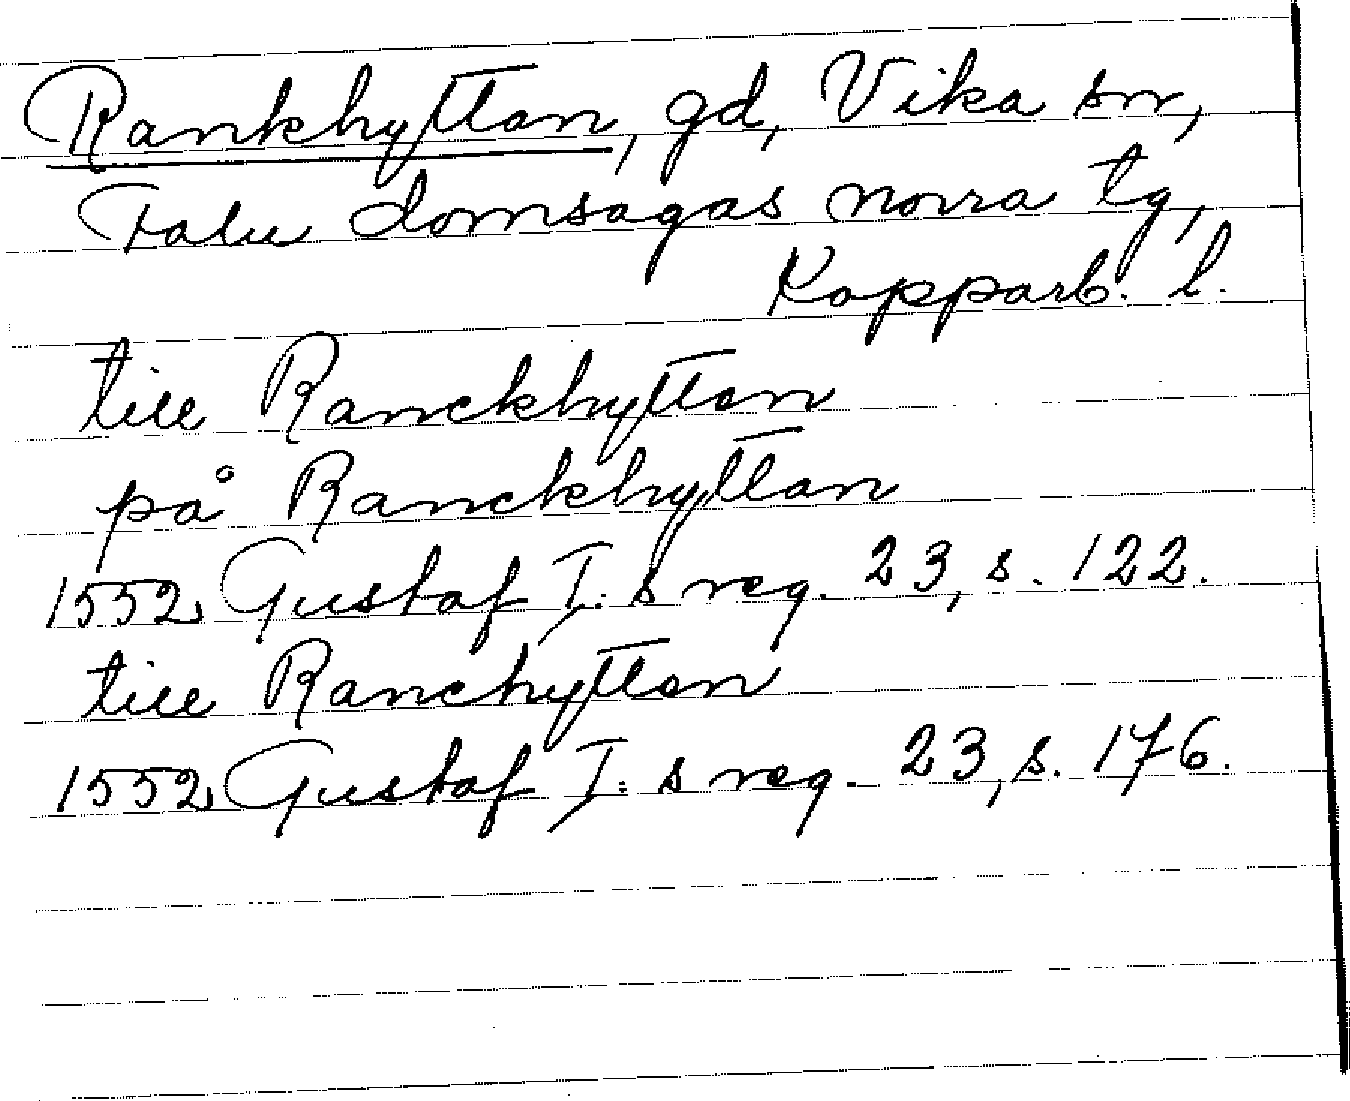 Rankhyttan, gd, Vika sn,
Falu domsagas norra tg,
Kopparb. l.
till Ranckhyttan
på Ranckhyttan
1552 Gustaf I: s reg. 23, s. 122.
till Ranchyttan
1552 Gustaf I: s reg. 23, s. 176.